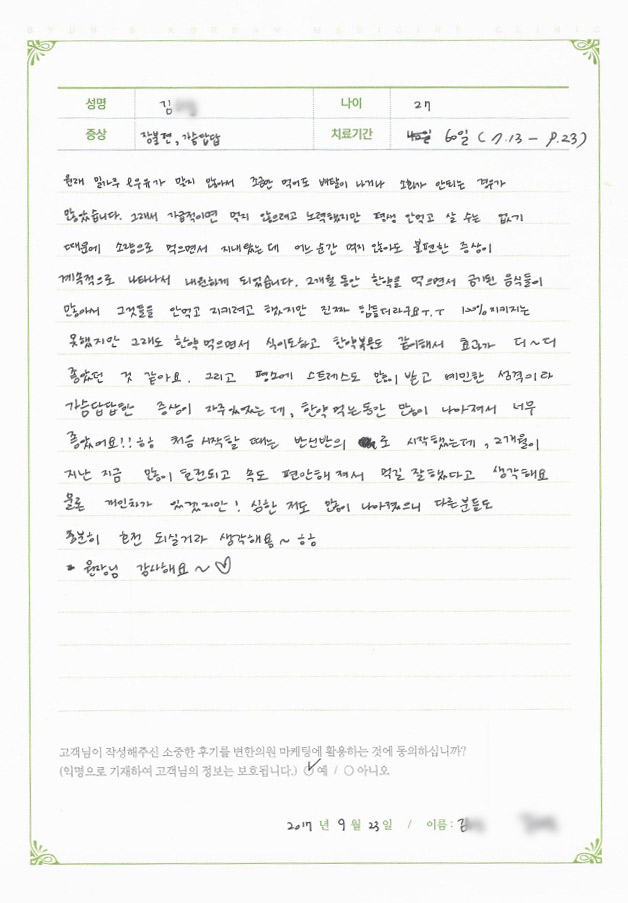 BYUN'S KOREAN MEDICINE CLINIC
성명 김 나이 27
증상 장불편, 가슴답답 치료기간 60일 (7.13 - 9.23)
원래 밀가루 우유가 맞지 않아서 조금만 먹어도 배탈이 나거나 소화가 안되는 경우가
많았습니다. 그래서 가급적이면 먹지 않으려고 노력했지만 평생 안먹고 살 수는 없기
때문에 소량으로 먹으면서 지내왔는데 어느순간 먹지 않아도 불편한 증상이
계속적으로 나타나서 내원하게 되었습니다. 2개월 동안 한약을 먹으면서 금기된 음식들이
많아서 그것들을 안먹고 지키려고 했지만 진짜 힘들더라구요ㅜ.ㅜ 100% 지키지는
못했지만 그래도 한약먹으면서 식이도하고 한약복용도 같이해서 효과가 더~더
좋았던 것 같아요. 그리고 평소에 스트레스도 많이 받고 예민한 성격이라
가슴답답한 증상이 자주있었는데, 한약먹는동안 많이 나아져서 너무
좋았어요!! ㅎㅎ 처음 시작할 때는 반신반의로 시작했는데, 2개월이
지난 지금 많이 호전되고 속도 편안해져서 먹길 잘했다고 생각해요
물론 개인차가 있겠지만! 심한 저도 많이 나아졌으니 다른분들도
충분히 호전 되실거라 생각해용~ ㅎㅎ
원장님 감사해요~♡
고객님이 작성해주신 소중한 후기를 변한의원 마케팅에 활용하는 것에 동의하십니까?
(익명으로 기재하여 고객님의 정보는 보호됩니다.) ○ 예 / ○ 아니오
2017 년 9 월 23 일 / 이름 : 김